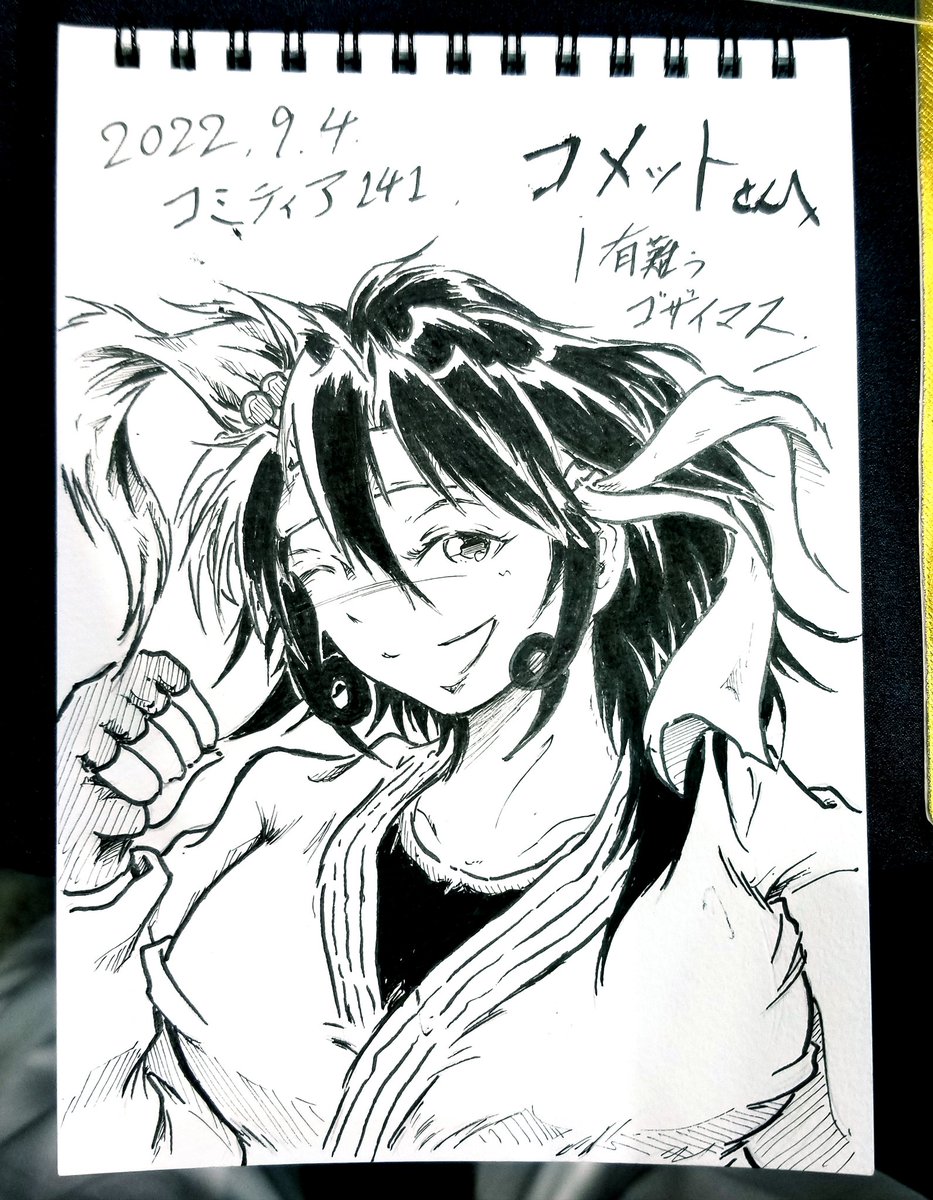 2022.9.4.
コミティア141.
コメットさんへ
有難う
ゴザイマス